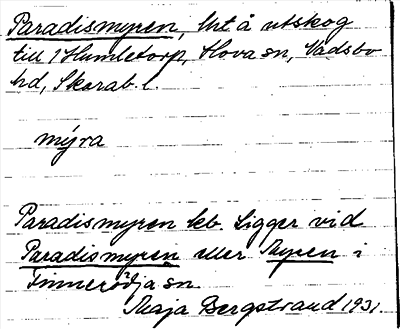 Paradismyren, trt å utskog
till 1 Humletorp, Hova sn, Vadsbo
hd, Skarab. l.
myra
Paradismyren kb. Ligger vid
Paradismyren eller Myren i
Finnerödja sn.
Maja Bergstrand 1931